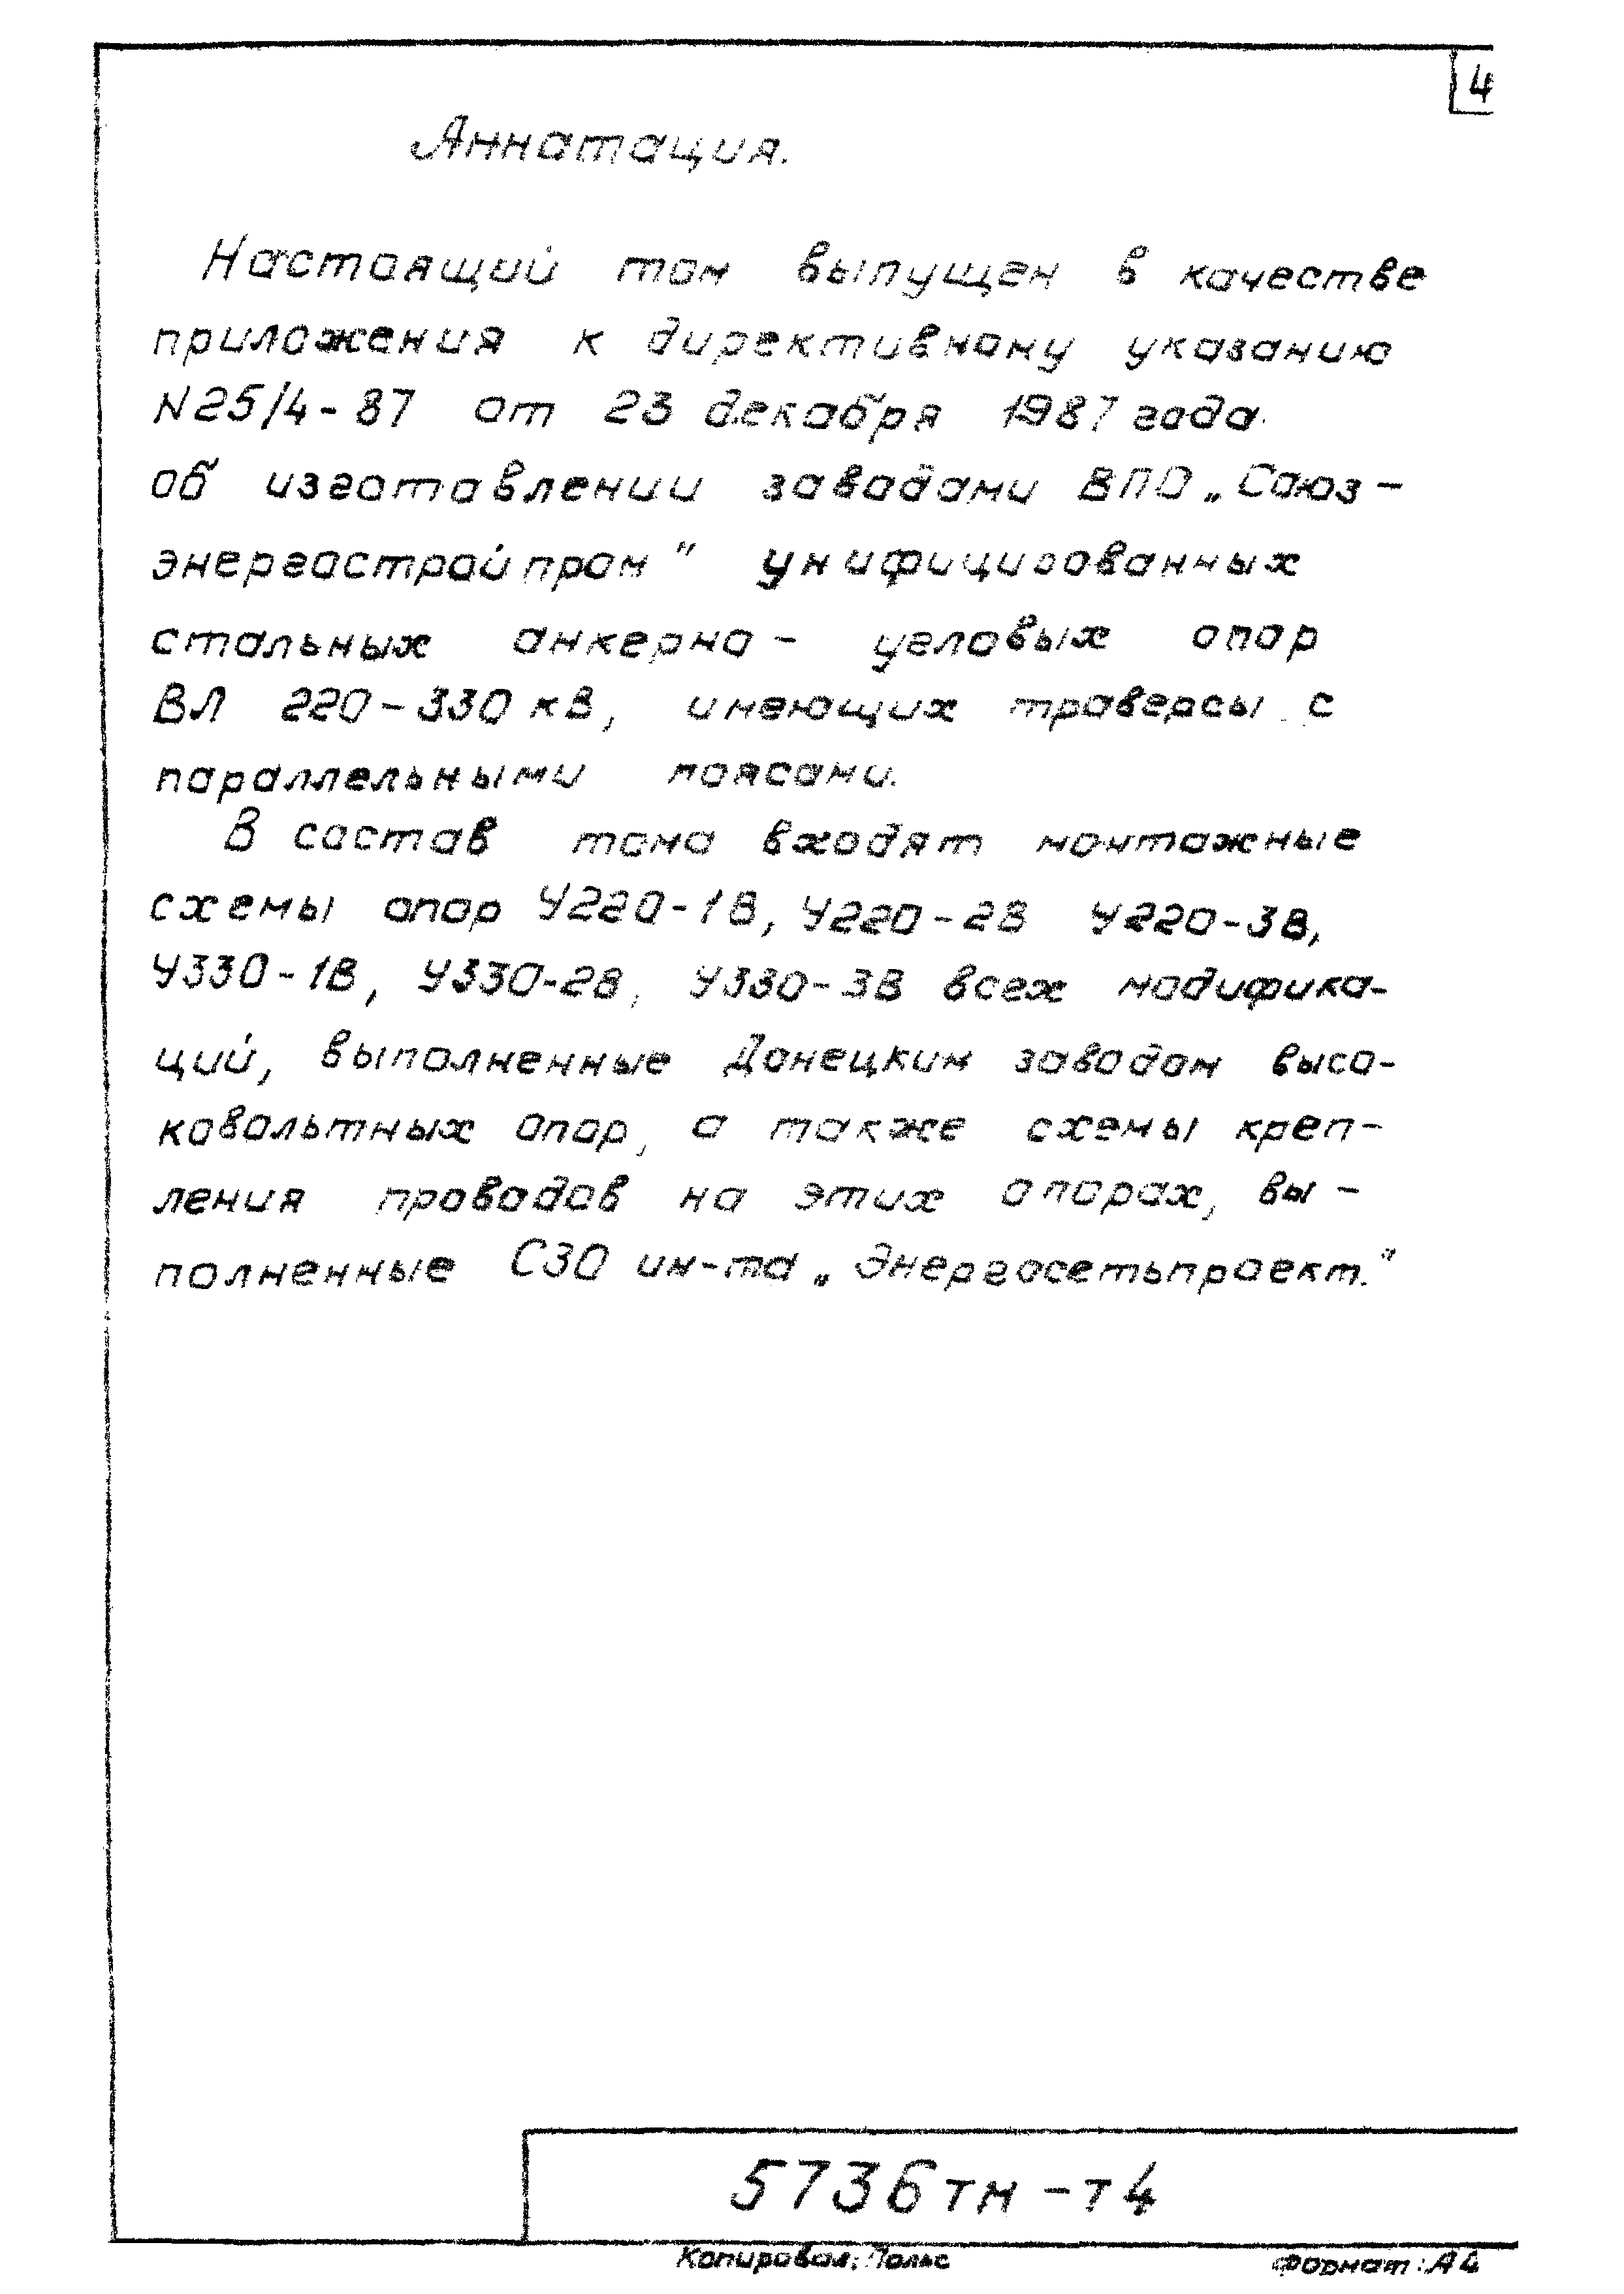 4
Аннатация.
Настоящий том выпущен в качестве
приложения к директивному указанию
N25/4-87 от 23 декабря 1987 года
об изготовлении заводами ВПО „Союз-
энергостройпром" унифицированных
стальных анкерно- угловых опор
ВЛ 220-330 кВ, имеющих траверсы с
параллельными поясами.
В состав тома входят монтажные
схемы опор У220-1В, У220-2В У220-3В,
У330-1В, У330-2В, У330-3В всех модифика-
ций, выполненные Донецким заводом высо-
ковольтных опор, а также схемы креп-
ления проводов на этих опорах, вы-
полненные СЗО ин-та „Энергосетьпроект."
5736тм-т4
Копировал: Польс
Формат: А4